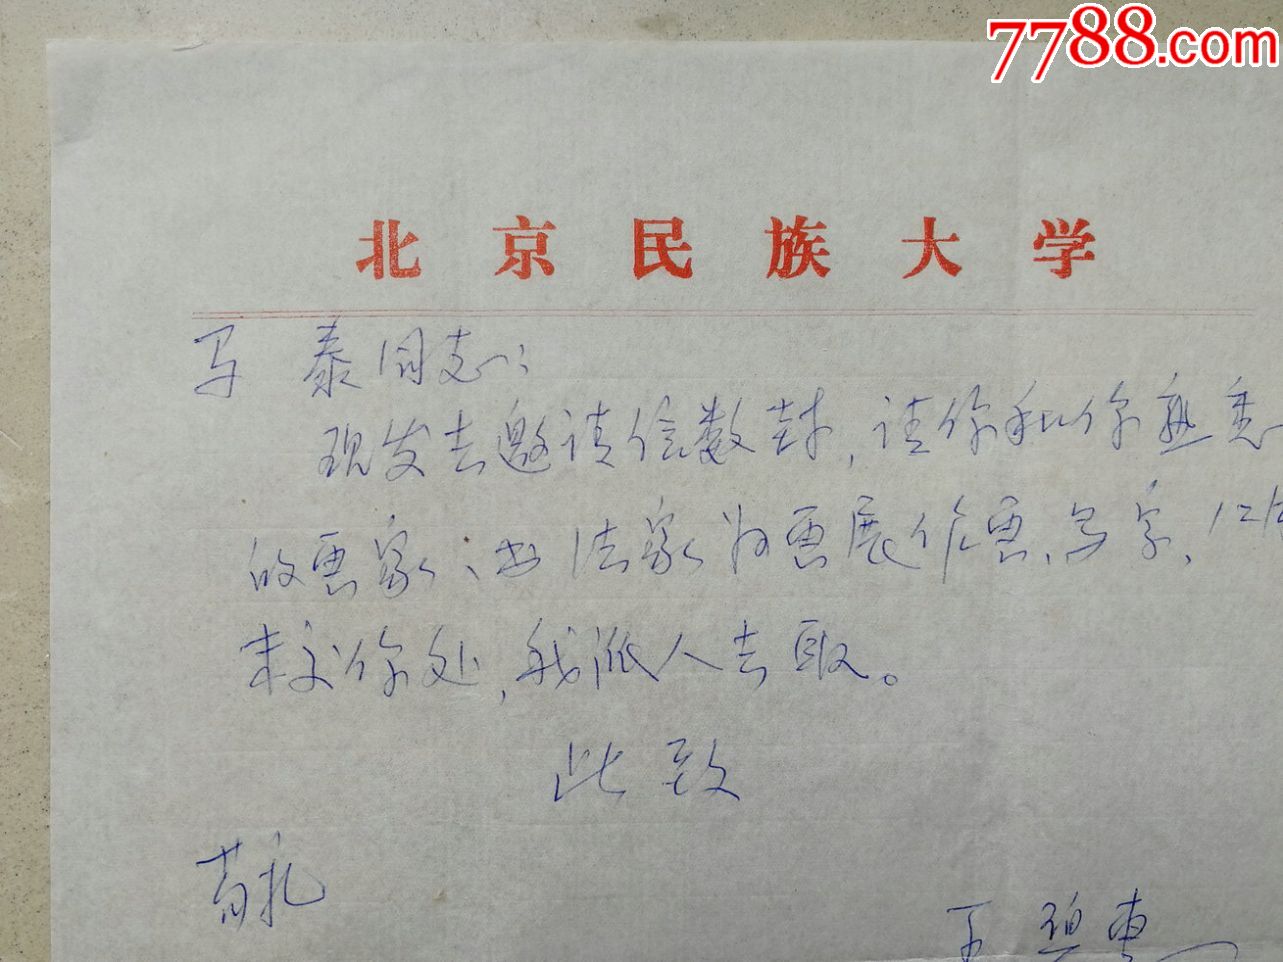 7788.com
北京民族大学
马 泰同志:
现发去邀请信数封,请你和你熟悉
的画家、书法家为画展作画、写字,汇集
来到你处,我派人去取。
此致
敬礼
王碧